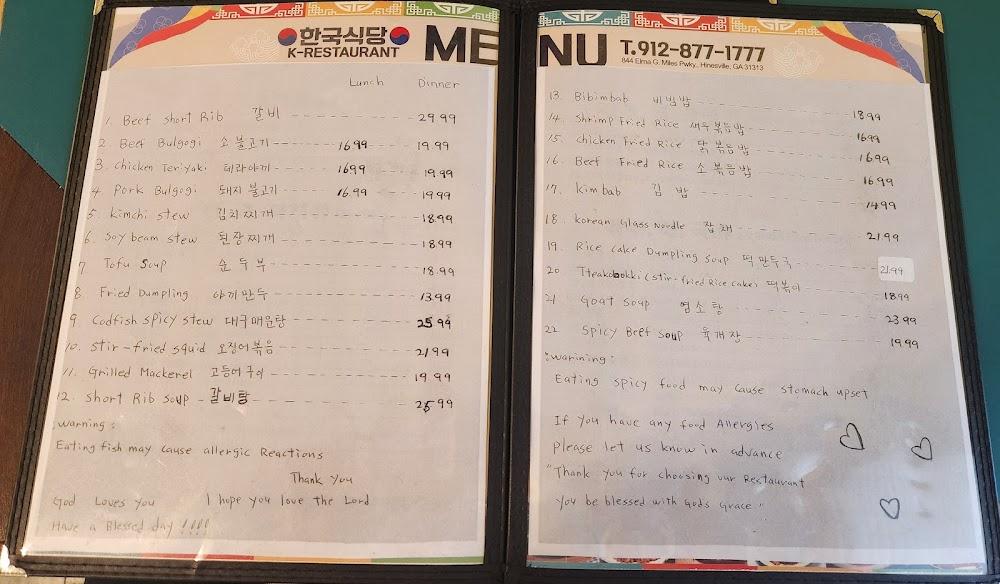 한국식당
K-RESTAURANT
MENU
T.912-877-1777
844 Elma G. Miles Pwky., Hinesville, GA 31313
Lunch Dinner
1. Beef short Rib 갈비 29.99
2. Beef Bulgogi 소불고기 16.99 19.99
3. chicken Teriyaki 테리야끼 16.99 19.99
4. Pork Bulgogi 돼지불고기 16.99 19.99
5. kimchi stew 김치찌개 18.99
6. Soy beam stew 된장찌개 18.99
7 Tofu Soup 순두부 18.99
8 Fried Dumpling 야끼만두 13.99
9 Codfish spicy stew 대구매운탕 25.99
10. stir-fried squid 오징어볶음 21.99
11. Grilled Mackerel 고등어구이 19.99
12. short Rib soup 갈비탕 25.99
;warning;
Eating fish may cause allergic Reactions
Thank you
God Loves you I hope you love the Lord
Have a Blessed day !!!!
13. Bibimbab 비빔밥 18.99
14. Shrimp Fried Rice 새우볶음밥 16.99
15. chicken Fried Rice 닭볶음밥 16.99
16. Beef Fried Rice 소볶음밥 16.99
17. kimbab 김밥 14.99
18. korean Glass Noodle 잡채 21.99
19. Rice cake Dumpling Soup 떡만두국 21.99
20 Tteakobokki (stir-fried Rice cake) 떡볶이 18.99
21 Goat soup 염소탕 23.99
22. Spicy Beef Soup 육개장 19.99
;warining;
Eating spicy food may cause stomach upset
If you have any food Allergies
please let us know in advance
"Thank you for choosing our Restaurant
You be blessed with God's Grace"